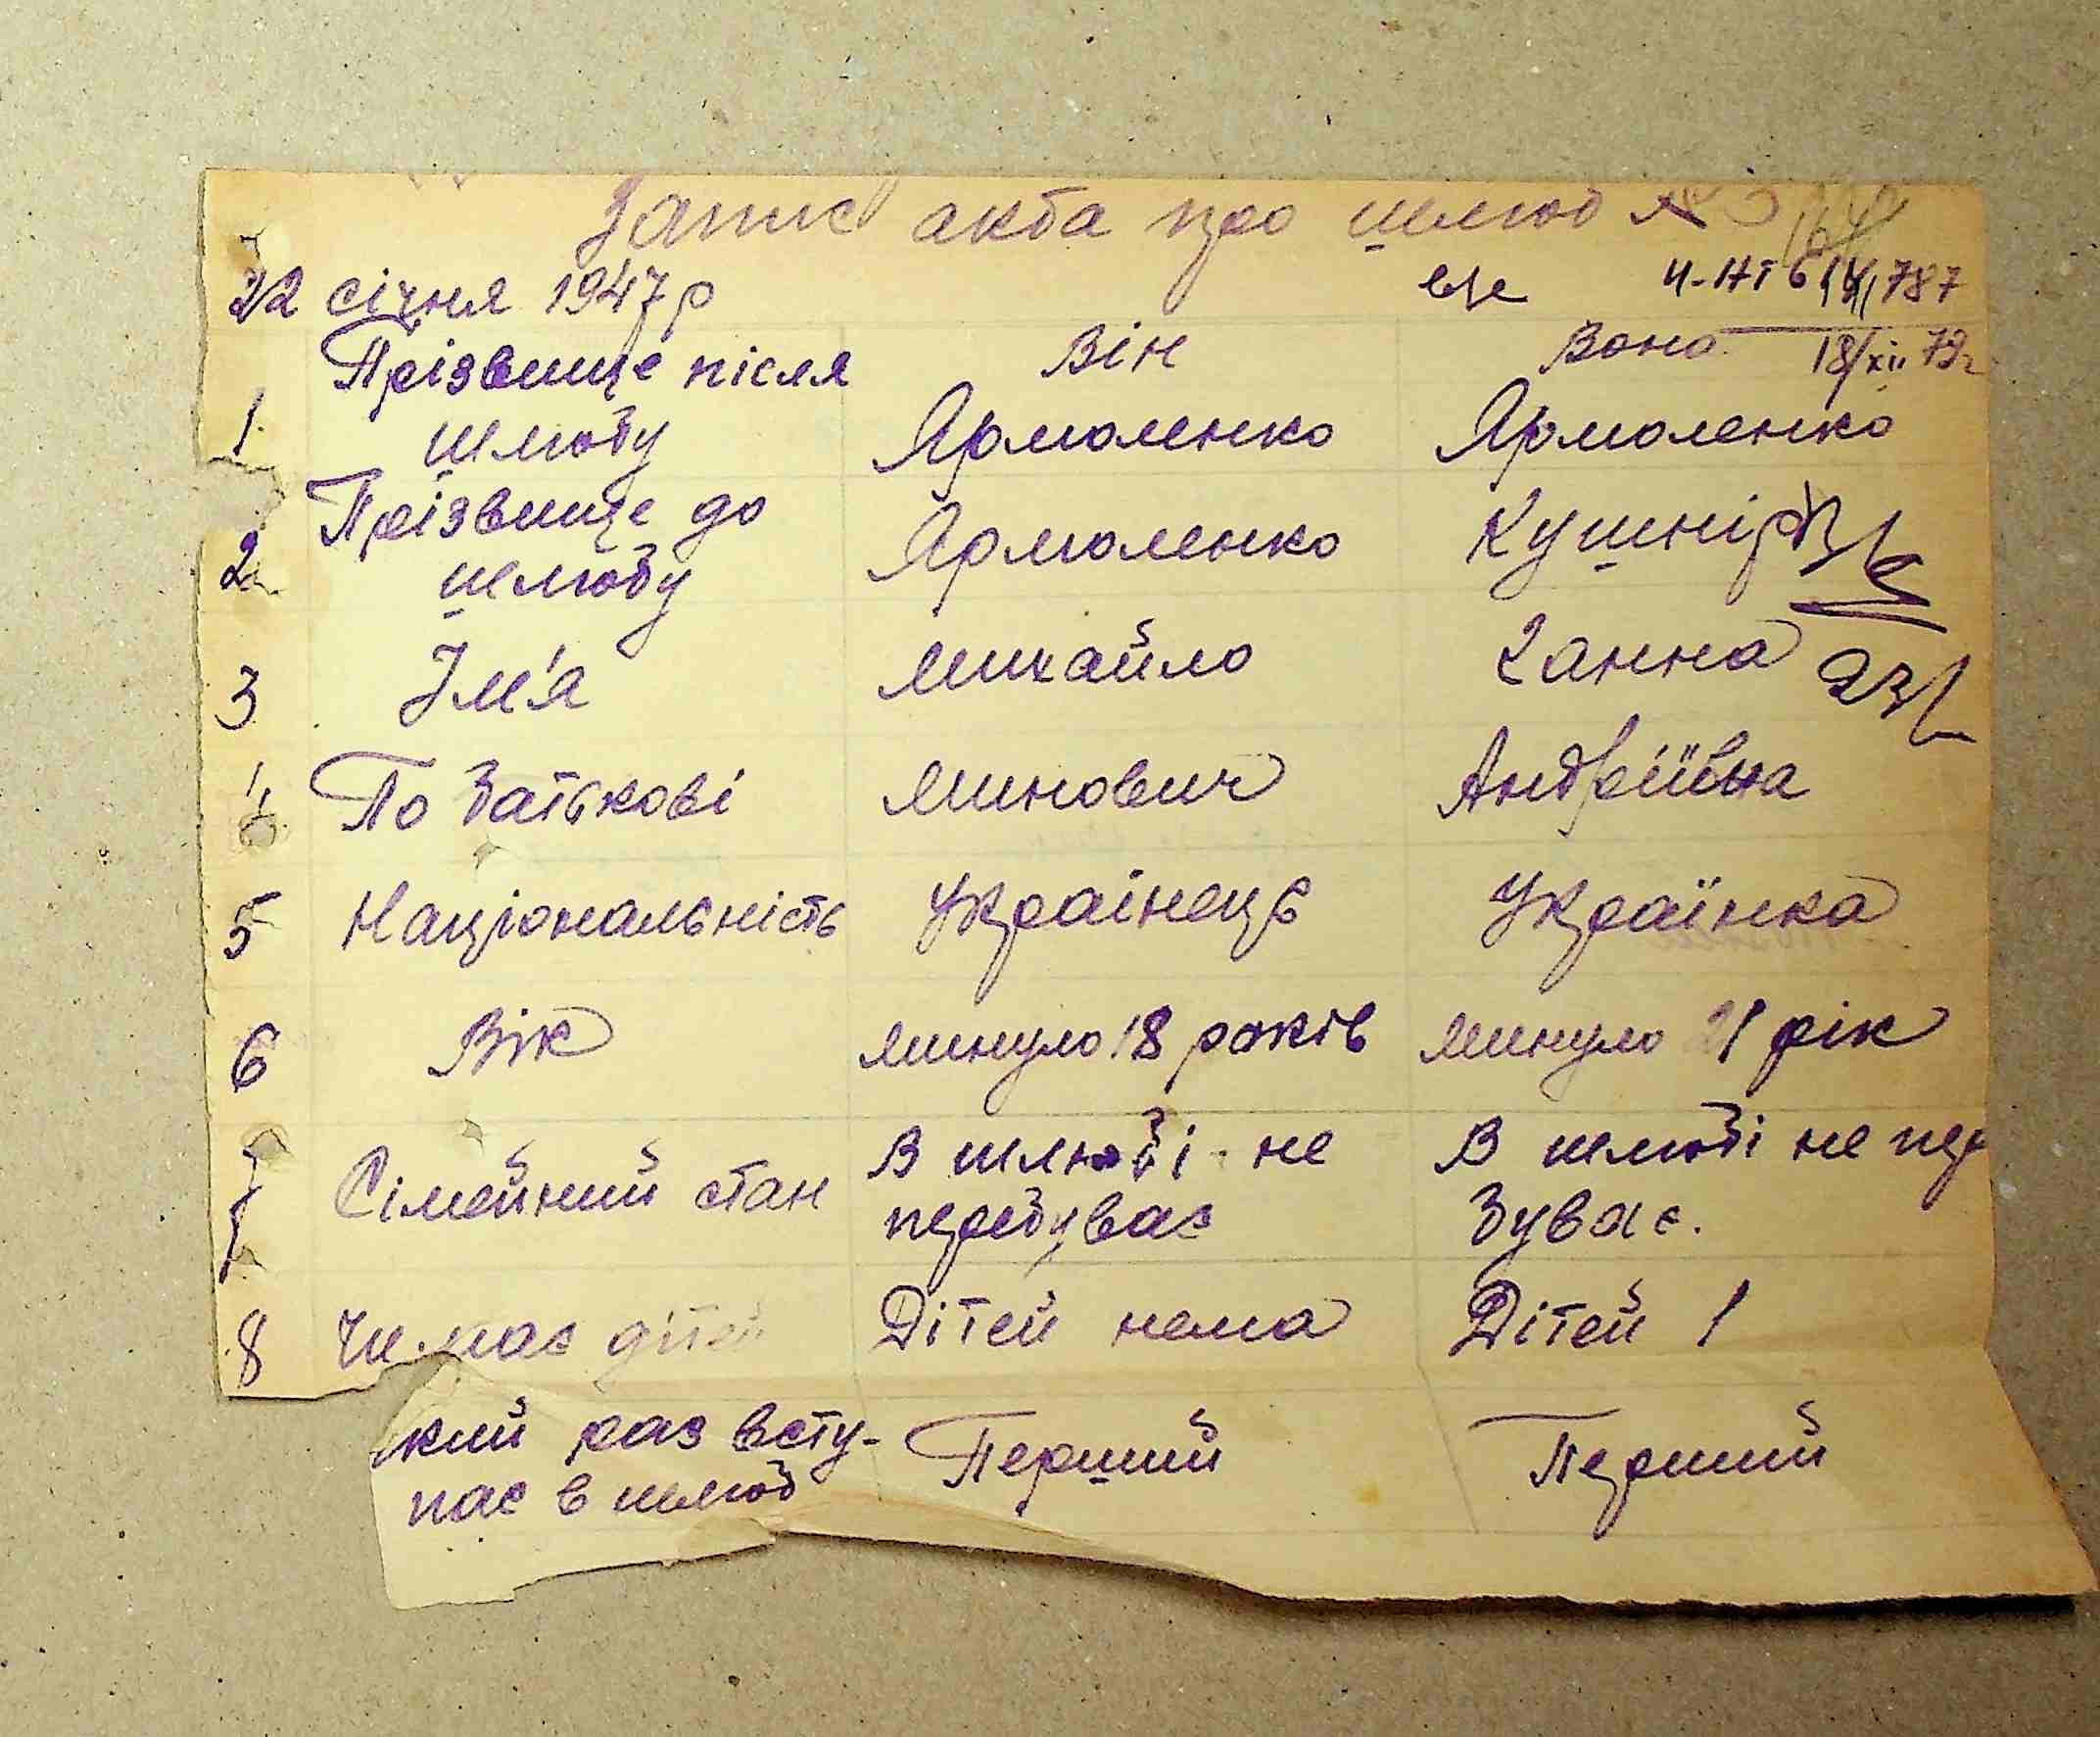 Запис акта про шлюб № 3
22 січня 1947 р
787
Він Вона 18/XII 72г
1 Прізвище після шлюбу Ярмоленко Ярмоленко
2 Прізвище до шлюбу Ярмоленко Кушнір
3 Ім'я Михайло Ганна
4 По батькові Минович Андріївна
5 Національність Украінець Українка
6 Вік минуло 18 років минуло 21 рік
7 Сімейний стан В шлюбі не перебуває В шлюбі не пере
буває.
8 Чи має дітей Дітей нема Дітей 1
який раз всту- Перший Перший
пає в шлюб